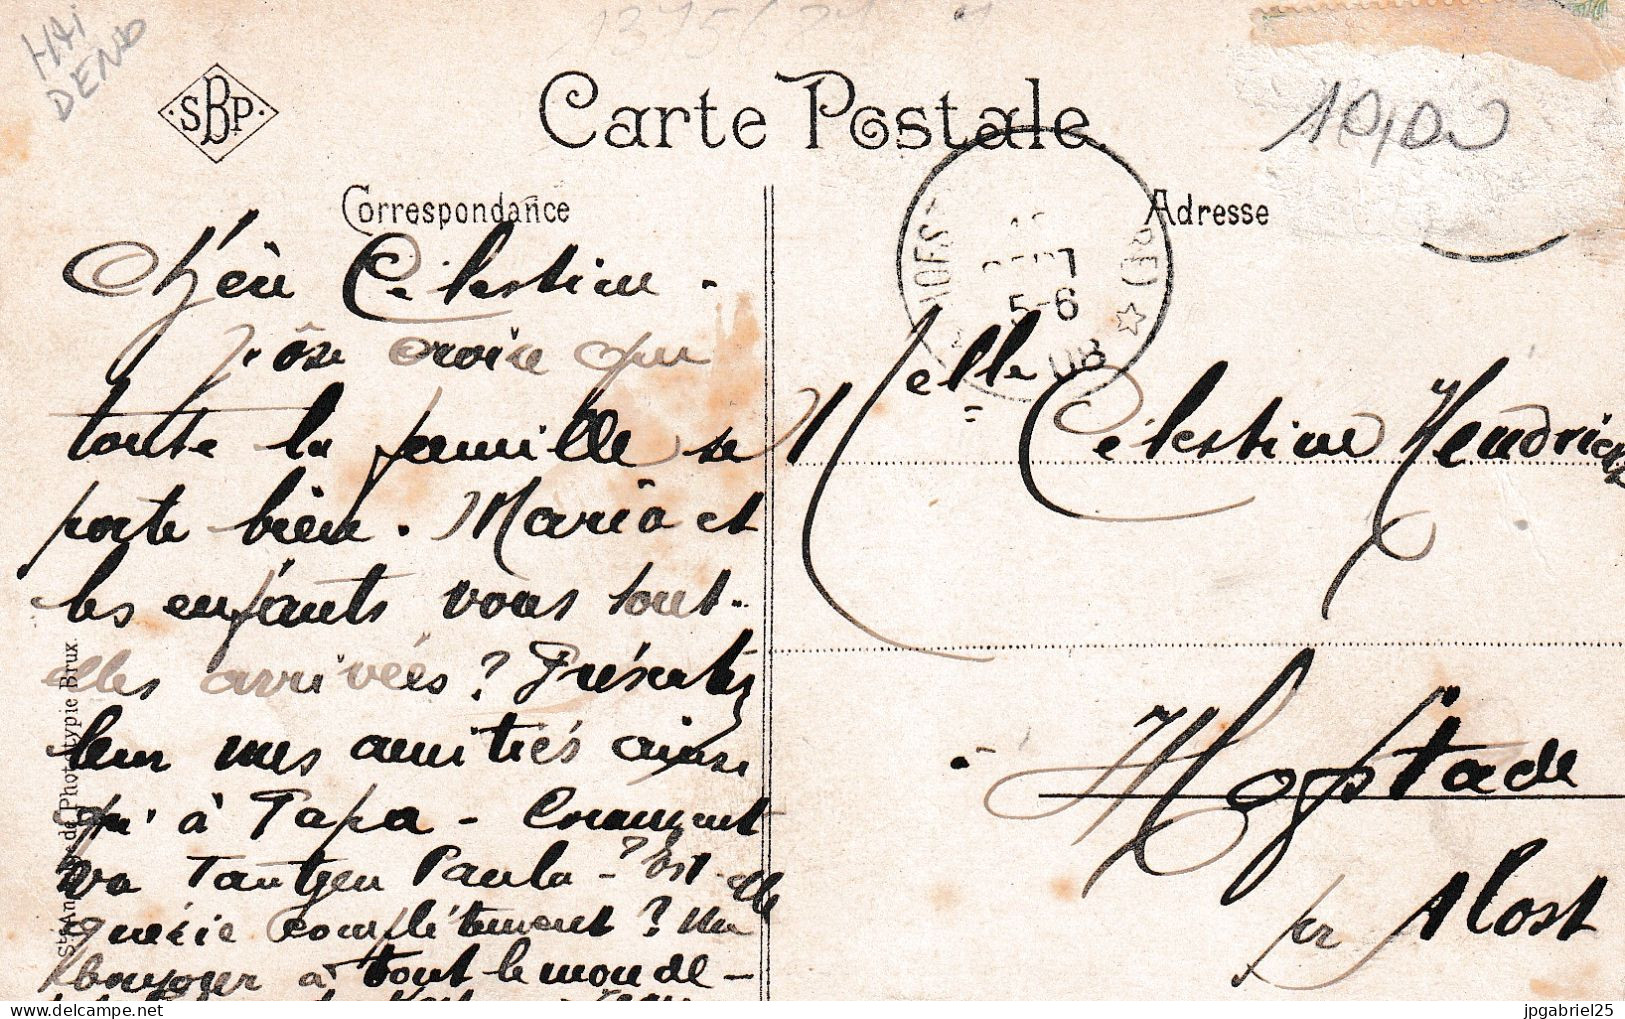 HAI
DEND
SBP
Carte Postale
10,00
Correspondance
Adresse
Chère Célestine.
J'ôse croire que
toute la famille se
porte bien. Maria et
les enfants vous sont-
elles arrivées? Présentez
leur mes amitiés ainsi
qu'à Papa - Comment
va Tantjen Paula -? Est-elle
guérie complètement? Un
bonjour à tout le monde -
5-6
Melle Célestine Hendrickx
Hofstade
pr Alost
Sté Anme de Phototypie Brux.
delcampe.net
jpgabriel25